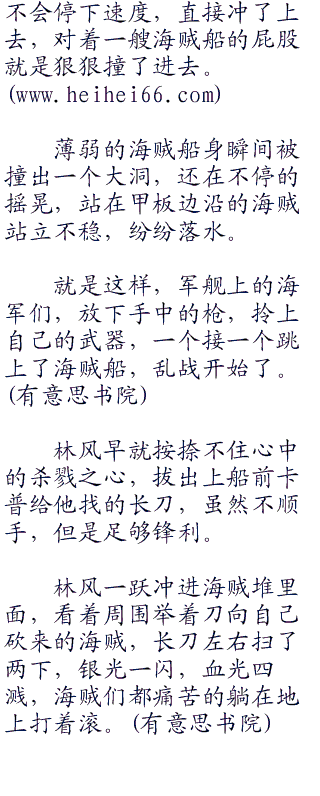 不会停下速度，直接冲了上
去，对着一艘海贼船的屁股
就是狠狠撞了进去。
(www.heihei66.com)
薄弱的海贼船身瞬间被
撞出一个大洞，还在不停的
摇晃，站在甲板边沿的海贼
站立不稳，纷纷落水。
就是这样，军舰上的海
军们，放下手中的枪，拎上
自己的武器，一个接一个跳
上了海贼船，乱战开始了。
(有意思书院)
林风早就按捺不住心中
的杀戮之心，拔出上船前卡
普给他找的长刀，虽然不顺
手，但是足够锋利。
林风一跃冲进海贼堆里
面，看着周围举着刀向自己
砍来的海贼，长刀左右扫了
两下，银光一闪，血光四
溅，海贼们都痛苦的躺在地
上打着滚。(有意思书院)